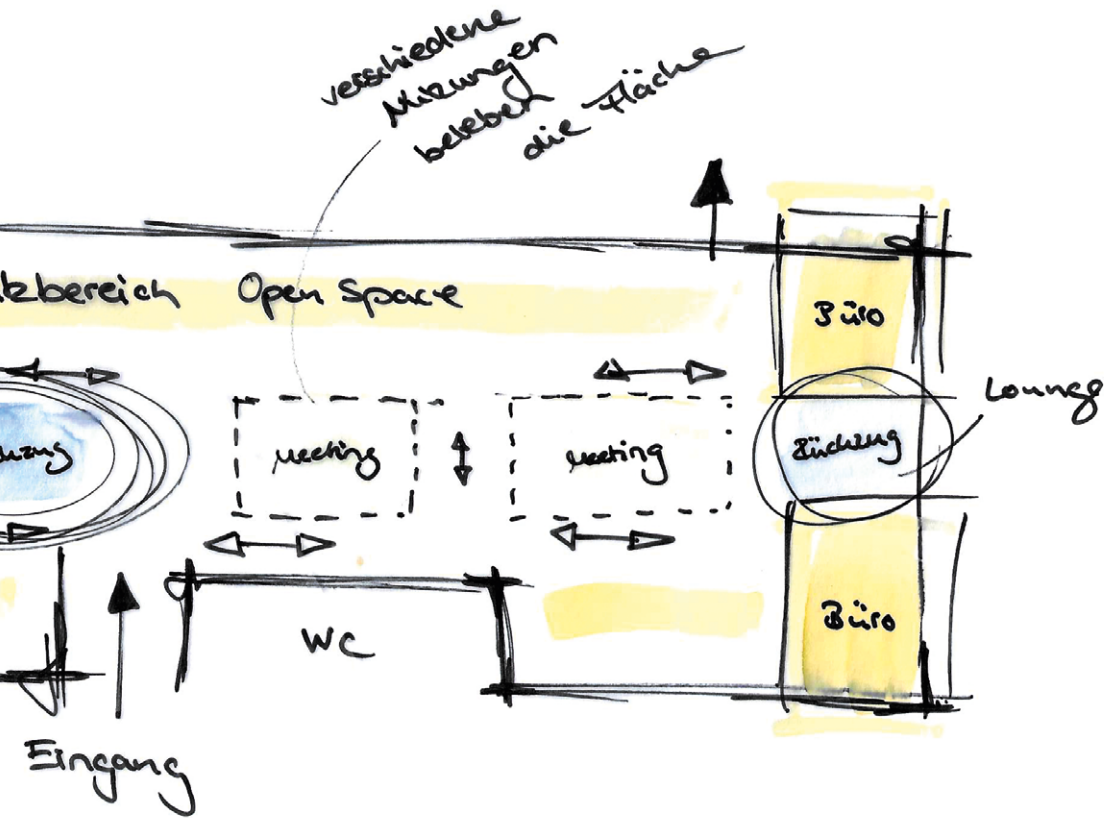 verschiedene
Nutzungen
beleben
die Fläche
tzbereich Open Space
Büro
Lounge
Meeting
Meeting
Rückzug
WC
Büro
Eingang